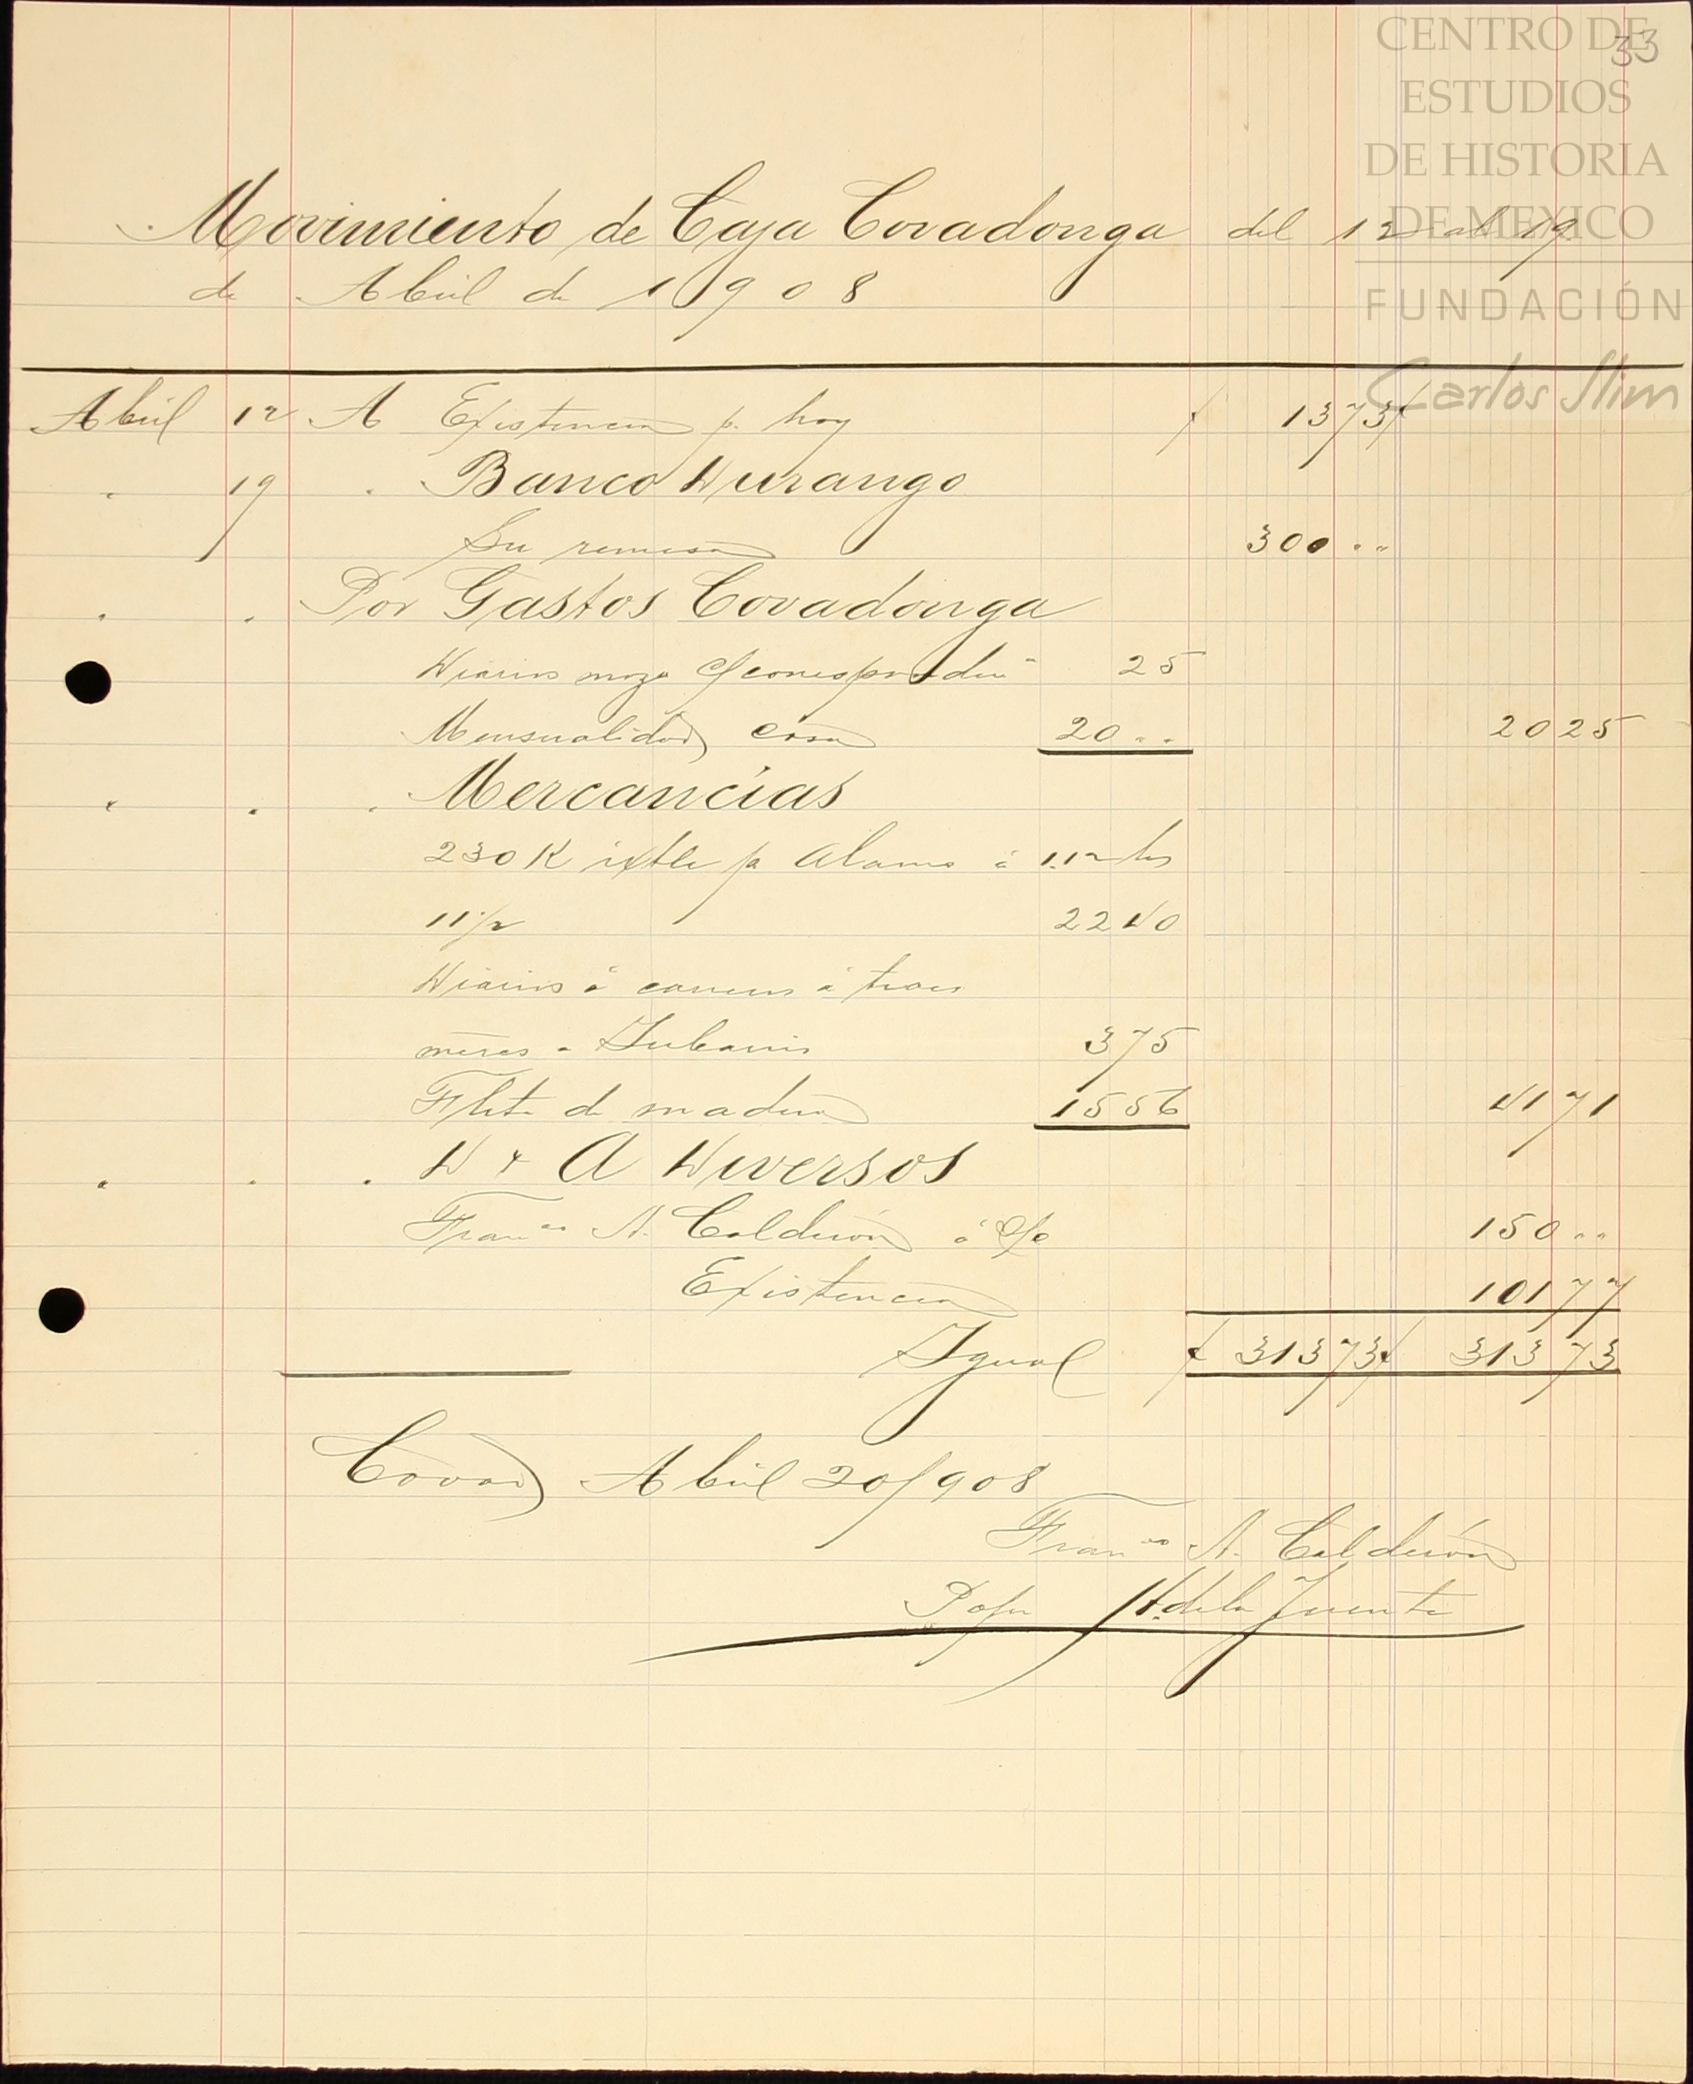 33
CENTRO DE
ESTUDIOS
DE HISTORIA
DE MEXICO
FUNDACIÓN
Carlos Slim
Movimiento de Caja Covadonga del 12 al 19
de Abril de 1908
Abril 12 A Existencia p. hoy $ 13 73
" 19 " Banco Durango
Su remesa 300 ""
" " Por Gastos Covadonga
Diarios mozo 25
Mensualidad casa 20 "" 20 25
" " " Mercancías
230 K ixtle pa Alamo á
11 1/2 22 40
Diarios á carreros á traer
3 75
Flete de madera 15 56 41 71
" " " D y A Diversos
Franco A. Calderón á c/c 150 ""
Existencia 101 77
Igual $ 313 73 $ 313 73
Covad Abril 20/908
Franco A. Calderón
de la Fuente